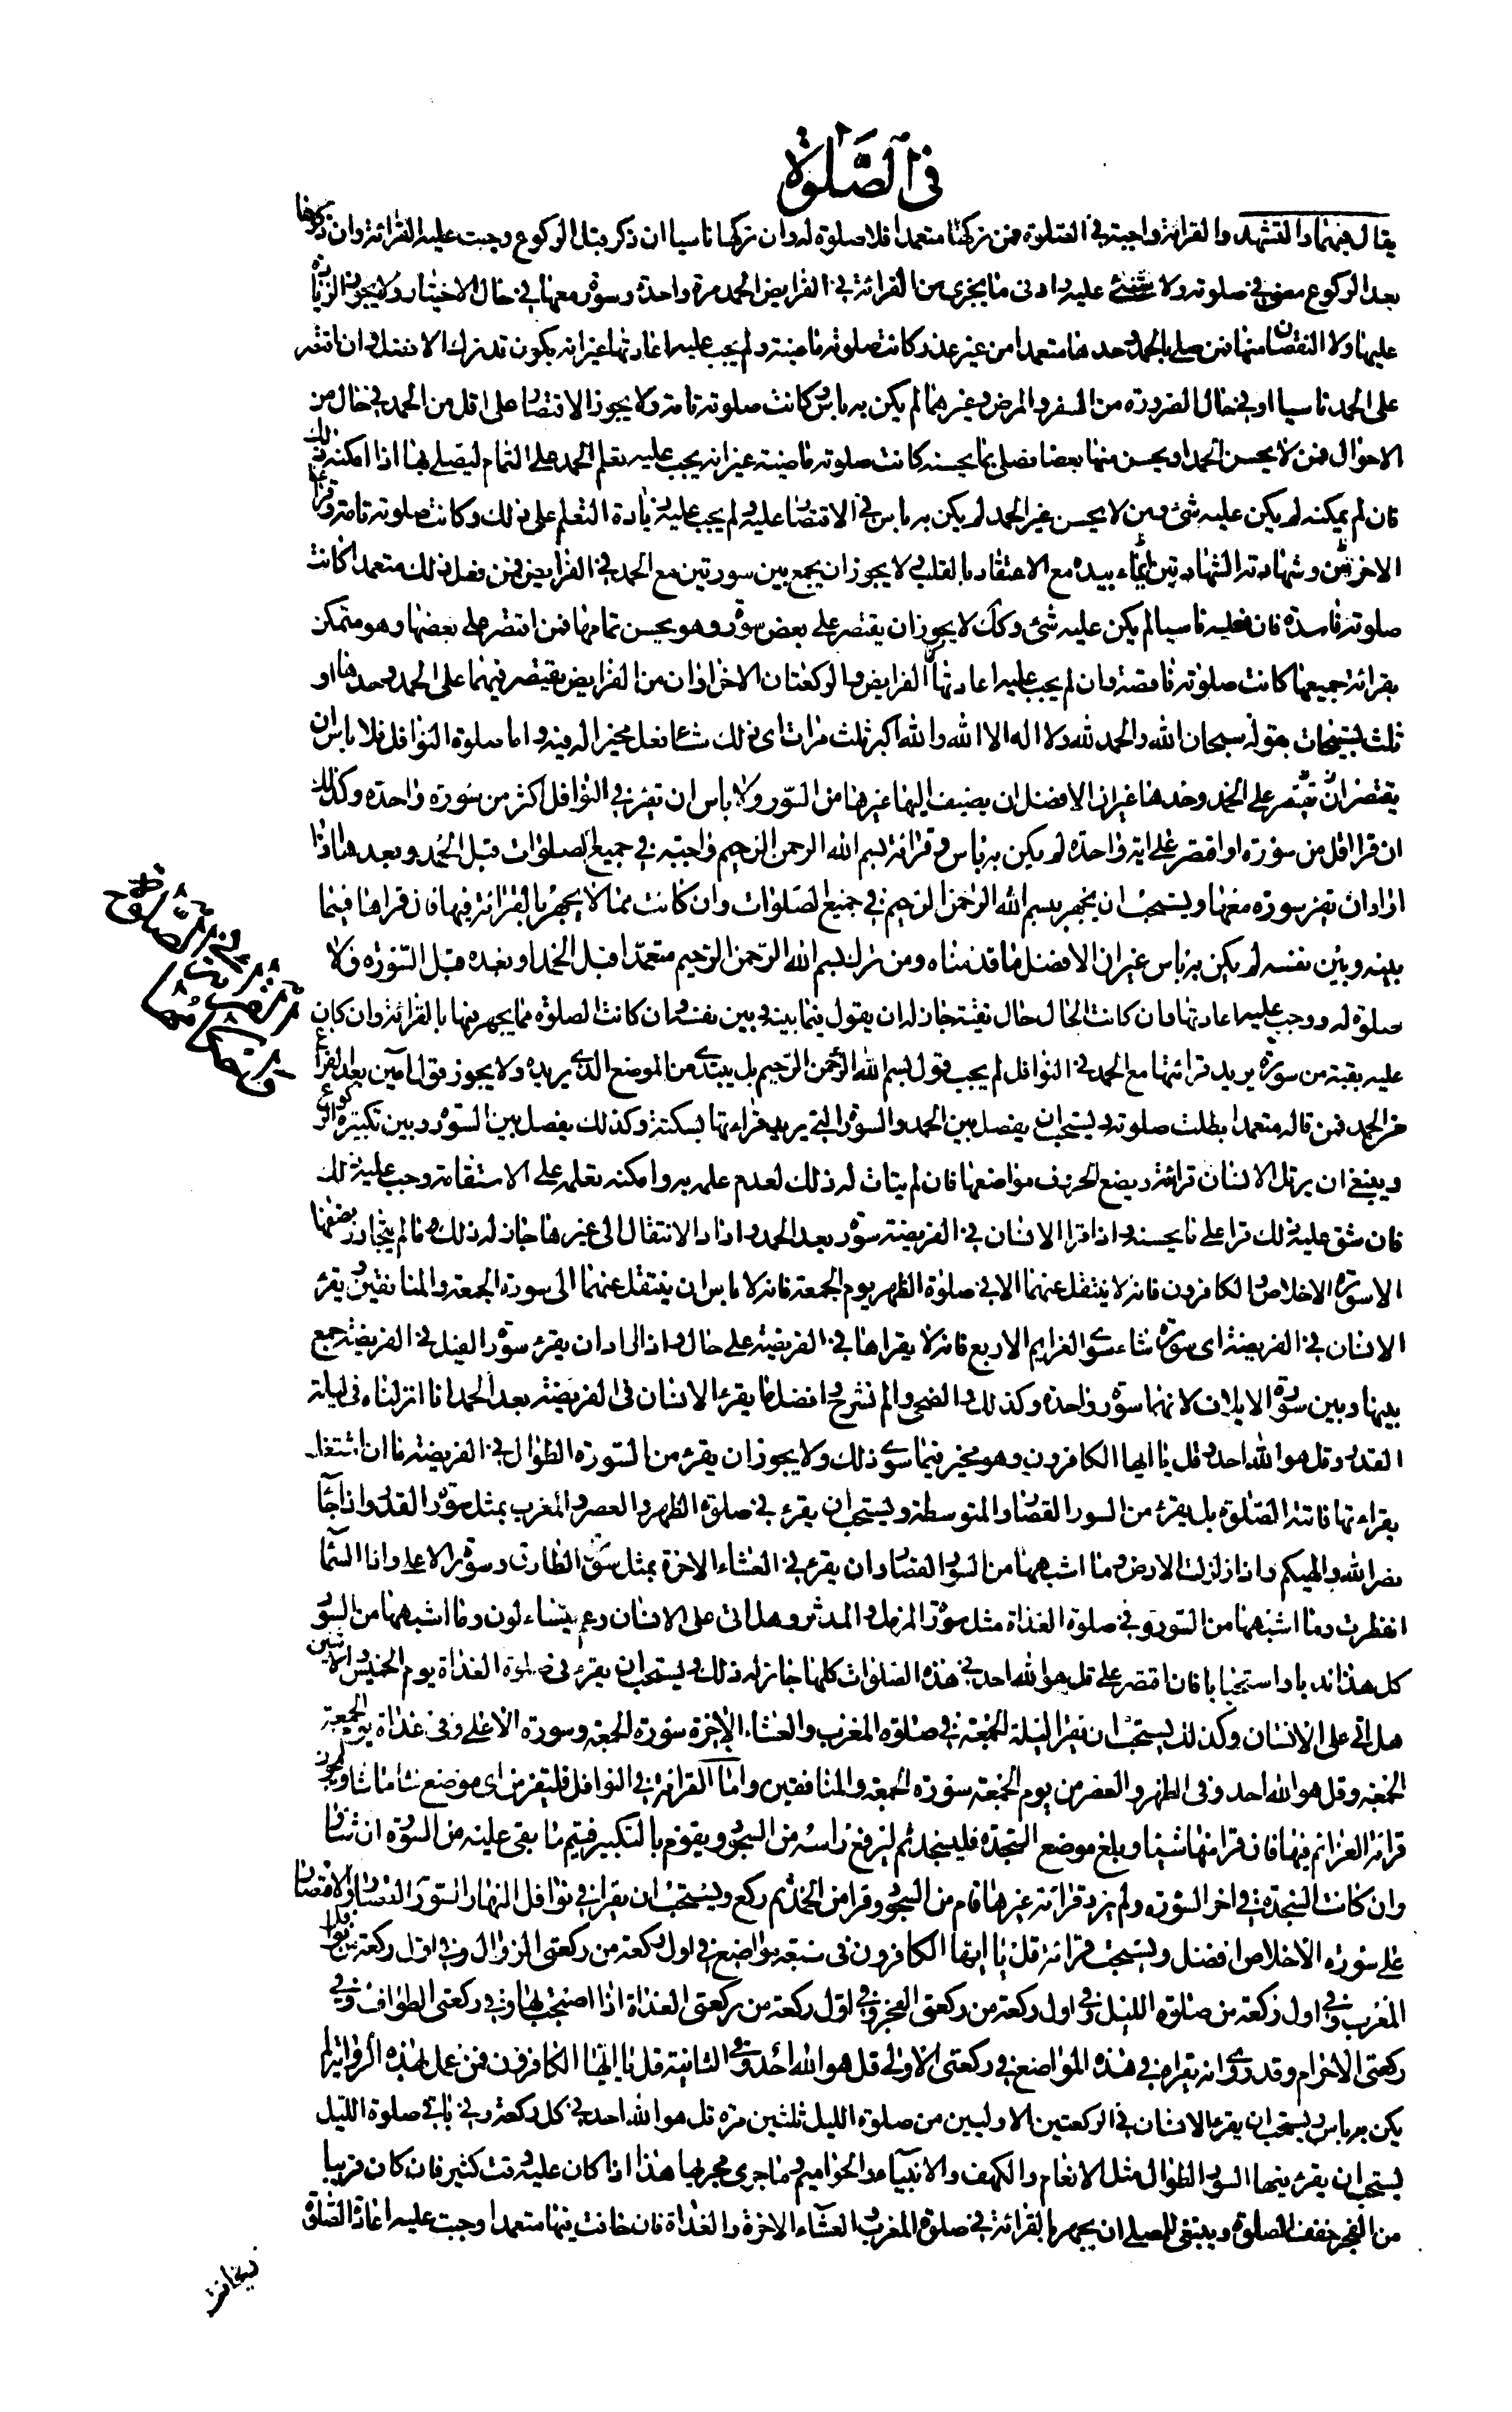 في الصلوة
يقال فيهما والتشهد والقرائة واجبة في الصلوة فمن تركها متعمدا فلا صلوة له وان تركها ناسيا ان ذكر قبل الركوع وجبت عليه القرائة وان ذكرها
بعد الركوع مضى في صلوته ولا شئ عليه وادنى ما يجزى من القرائة في الفرايض الحمد مرة واحدة وسورة معها في حال الاختيار ولا يجوز الزيادة
عليها ولا النقصان منها فمن صلى بالحمد وحدها متعمدا من غير عذر كانت صلوته ماضية ولم يجب عليه اعادتها غير انه يكون قد ترك الافضل وان اقتصر
على الحمد ناسيا او في حال الضرورة من السفر والمرض وغيرهما لم يكن به باس وكانت صلوته تامة ولا يجوز الاقتصار على اقل من الحمد في حال من
الاحوال فمن لا يحسن الحمد او يحسن منها بعضا فصلى بما يحسنه كانت صلوته ماضية غير انه يجب عليه تعلم الحمد على التمام ليصلى بها اذا امكنه ذلك
فان لم يمكنه لم يكن عليه شئ ومن لا يحسن غير الحمد لم يكن به باس في الاقتصار عليه ولم يجب عليه زيادة التعلم على ذلك وكانت صلوته تامة وقرائة
الاخرس وشهادته الشهادتين ايماء بيده مع الاعتقاد بالقلب ولا يجوز ان يجمع بين سورتين مع الحمد في الفرايض فمن فعل ذلك متعمدا كانت
صلوته فاسدة فان فعله ناسيا لم يكن عليه شئ وكك لا يجوز ان يقتصر على بعض سورة وهو يحسن تمامها فمن اقتصر على بعضها وهو متمكن
بقرائة جميعها كانت صلوته ناقصة وان لم يجب عليه اعادتها الفرايض والركعتان الاخراوان من الفرايض يقتصر فيهما على الحمد وحدها او
ثلث تسبيحات بقوله سبحان الله والحمد لله ولا اله الا الله والله اكبر ثلث مرات اى ذلك شئا فعل مخير اليه فيه واما صلوة النوافل فلا باس ان
يقتصر ان يقتصر على الحمد وحدها غير ان الافضل ان يضيف اليها غيرها من السور ولا باس ان تقرء في النوافل اكثر من سورة واحدة وكذلك
ان قرا اقل من سورة او اقتصر على اية واحدة لم يكن به باس وقرائة بسم الله الرحمن الرحيم واجبة في جميع الصلوات قبل الحمد وبعدها اذا
اراد ان يقرء سورة معها ويستحب ان يجهر ببسم الله الرحمن الرحيم في جميع الصلوات وان كانت مما لا يجهر بالقرائة فيها فان قراها فيما
بينه وبين نفسه لم يكن به باس غير ان الافضل ما قدمناه ومن ترك بسم الله الرحمن الرحيم متعمدا قبل الحمد او بعده قبل السورة فلا
صلوة له ووجب عليه اعادتها وان كانت الحال حال تقية جاز له ان يقول فيما بينه وبين نفسه وان كانت الصلوة مما يجهر فيها بالقرائة وان كان
عليه بقية من سورة يريد قرائتها مع الحمد في النوافل لم يجب قول بسم الله الرحمن الرحيم بل يبتدى من الموضع الذى يريده ولا يجوز قول آمين بعد الفراغ
من الحمد فمن قاله متعمدا بطلت صلوته ويستحب ان يفصل بين الحمد والسورة التي يريد قراءتها بسكتة وكذلك يفصل بين السورة وبين تكبيرة الركوع
وينبغى ان يرتل الانسان قرائته ويضع الحروف مواضعها فان لم يتات له ذلك لعدم علمه به وامكنه تعلمه على الاستقامة وجب عليه ذلك
فان شق عليه ذلك قرا على ما يحسنه واذا قرا الانسان في الفريضة سورة بعد الحمد واراد الانتقال الى غيرها جاز له ذلك ما لم يتجاوز نصفها
الا سورة الاخلاص والكافرون فانه لا ينتقل عنهما الا في صلوة الظهر يوم الجمعة فانه لا باس ان ينتقل عنهما الى سورة الجمعة والمنافقين ويقرء
الانسان في الفريضة اى سورة شاء سوى العزايم الاربع فانه لا يقراها في الفريضة على حال واذا اراد ان يقرء سورة الفيل في الفريضة جمع
بينها وبين سورة الايلاف لانهما سورة واحدة وكذلك والضحى والم نشرح وافضل ما يقرء الانسان في الفريضة بعد الحمد انا انزلناه في ليلة
القدر وقل هو الله احد وقل يا ايها الكافرون وهو مخير فيما سوى ذلك ولا يجوز ان يقرء من السورة الطوال في الفريضة ما ان اشتغل
بقراءتها فاتته الصلوة بل يقرء من السور القصار والمتوسطة ويستحب ان يقرء في صلوة الظهر والعصر والمغرب بمثل سورة القدر واذا جاء
نصر الله والهيكم واذا زلزلت الارض وما اشبهها من السور القصار وان يقرء في العشاء الاخرة بمثل سورة الطارق وسورة الاعلى واذا السماء
انفطرت وما اشبهها من السور وفي صلوة الغداة مثل سورة المزمل والمدثر وهل اتى على الانسان وعم يتساءلون وما اشبهها من السور
كل هذا ندبا واستحبابا فان اقتصر على قل هو الله احد في هذه الصلوات كلها جاز له ذلك ويستحب ان يقرء في صلوة الغداة يوم الخميس والاثنين
هل اتى على الانسان وكذلك يستحب ان يقرا ليلة الجمعة في صلوة المغرب والعشاء الاخرة سورة الجمعة وسورة الاعلى وفي غداة يوم الجمعة
الجمعة وقل هو الله احد وفي الظهر والعصر من يوم الجمعة سورة الجمعة والمنافقين واما القرائة في النوافل فليقرء من اى موضع شاء ما شاء ويجوز
قرائة العزائم فيها فان قرا منها شيئا وبلغ موضع السجدة فليسجد ثم ليرفع راسه من السجود ويقوم بالتكبير فيتم ما بقى عليه من السورة ان شاء
وان كانت السجدة في اخر السورة ولم يرد قرائة غيرها قام من السجود وقرا من الحمد ثم ركع ويستحب ان يقرا في نوافل النهار السور القصار والاقتصار
على سورة الاخلاص افضل ويستحب قرائة قل يا ايها الكافرون في سبعة مواضع في اول ركعة من ركعتى الزوال وفي اول ركعة من نوافل
المغرب وفي اول ركعة من صلوة الليل وفي اول ركعة من ركعتى الفجر وفي اول ركعة من ركعتى الغداة اذا اصبح بها وفي ركعتى الطواف وفي
ركعتى الاحرام وقد روى انه يقراه في هذه المواضع في ركعتى الاولى قل هو الله احد وفي الثانية قل يا ايها الكافرون فمن عمل بهذه الرواية لم
يكن به باس ويستحب ان يقرء الانسان في الركعتين الاوليين من صلوة الليل ثلثين مرة قل هو الله احد في كل ركعة وفي باقي صلوة الليل
يستحب ان يقرء فيها السور الطوال مثل الانعام والكهف والانبياء والحواميم وما جرى مجريها هذا اذا كان عليه وقت كثير فان كان قريبا
من الفجر خفف الصلوة وينبغى للمصلى ان يجهر بالقرائة في صلوة المغرب والعشاء الاخرة والغداة فان خافت فيها متعمدا وجبت عليه اعادة الصلوة